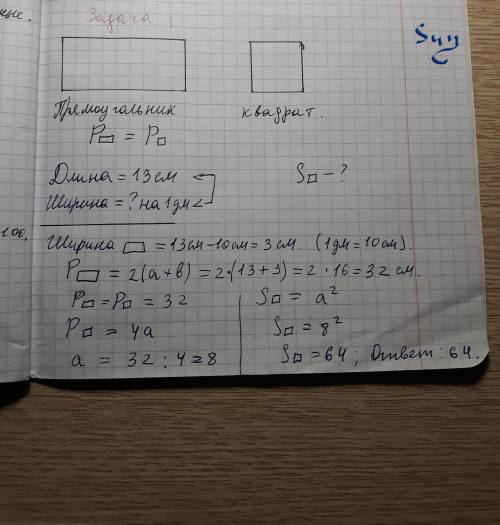 ные.
Задача
Syy
Прямоугольник
квадрат.
P▭ = P□
Длина = 13 см
S□ - ?
Ширина = ? на 1 дм <
100.
Ширина ▭ = 13 см - 10 см = 3 см (1 дм = 10 см).
P▭ = 2(а + в) = 2 · (13 + 3) = 2 · 16 = 32 см.
P▭ = P□ = 32
P□ = 4а
а = 32 : 4 = 8
S□ = а²
S□ = 8²
S□ = 64 ; Ответ: 64.